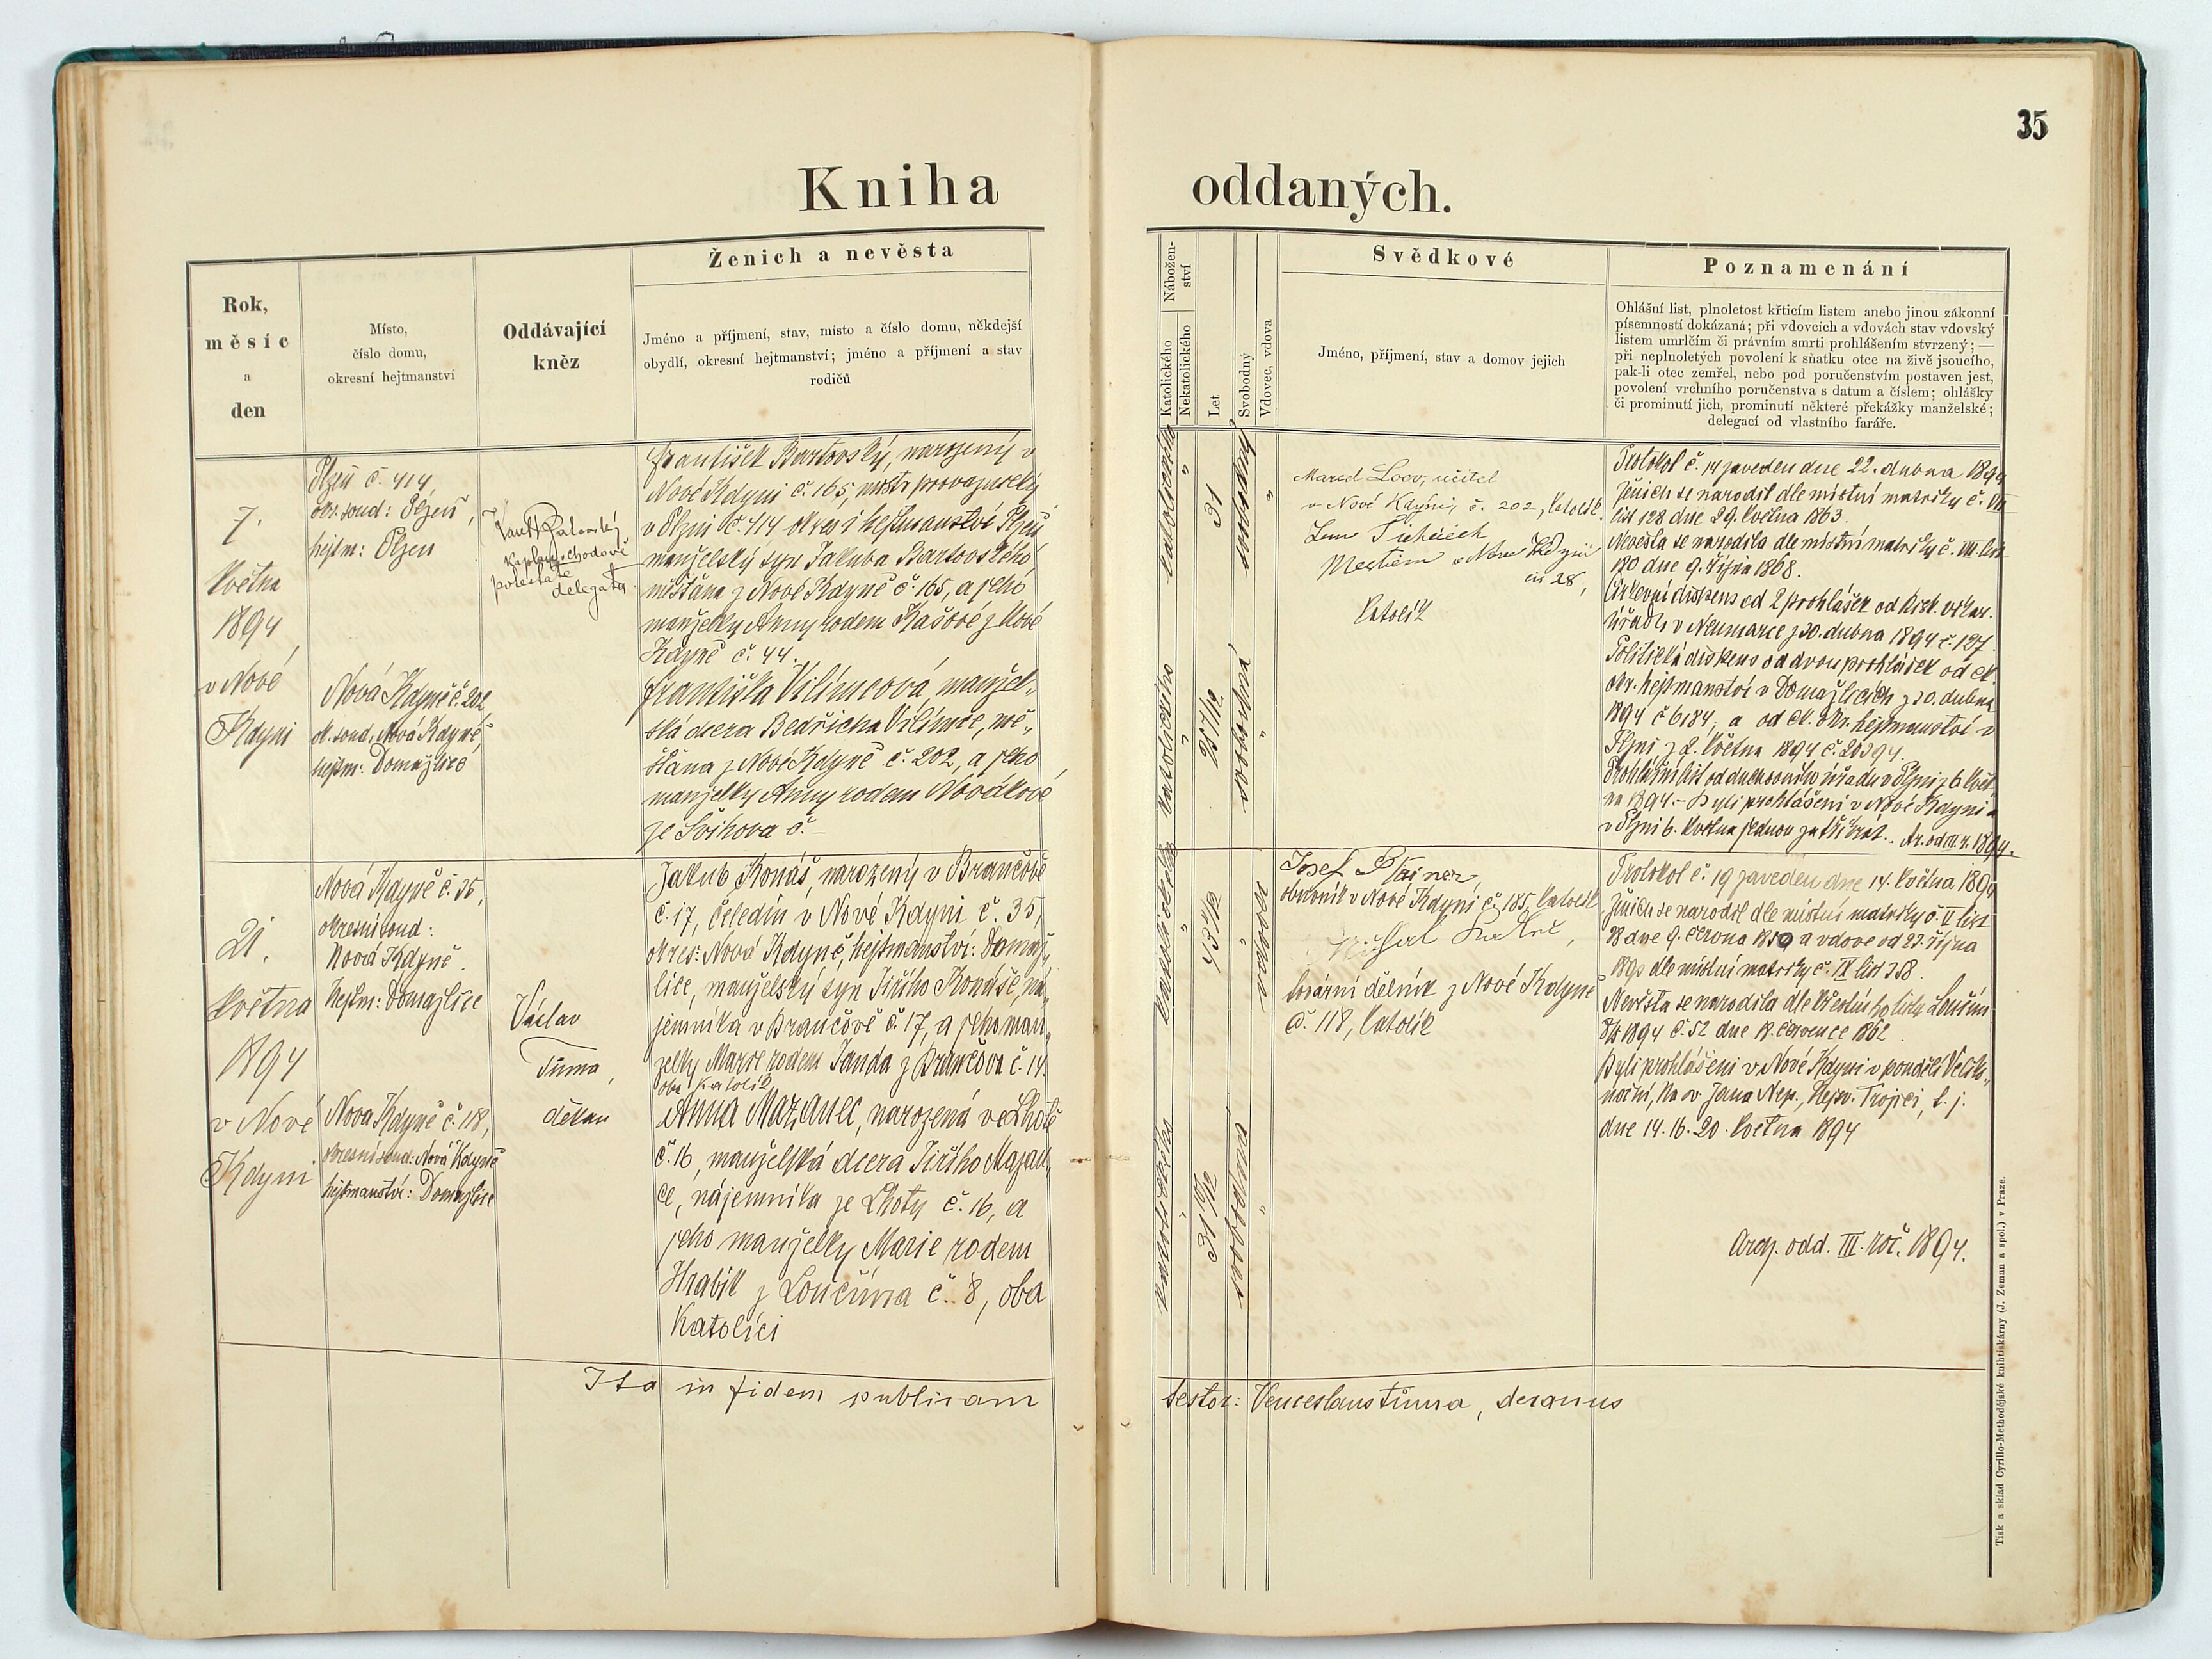 35
Kniha oddaných.
Rok,
měsíc
a
den
Místo,
číslo domu,
okresní hejtmanství
Oddávající
kněz
Ženich a nevěsta
Jméno a příjmení, stav, místo a číslo domu, někdejší
obydlí, okresní hejtmanství; jméno a příjmení a stav
rodičů
Nábožen-
ství
Katolického
Nekatolického
Let
Svobodný
Vdovec, vdova
Svědkové
Jméno, příjmení, stav a domov jejich
Poznamenání
Ohlášní list, plnoletost křticím listem anebo jinou zákonní
písemností dokázaná; při vdovcích a vdovách stav vdovský
listem umrlčím či právním smrti prohlášením stvrzený; —
při neplnoletých povolení k sňatku otce na živě jsoucího,
pak-li otec zemřel, nebo pod poručenstvím postaven jest,
povolení vrchního poručenstva s datum a číslem; ohlášky
či prominutí jich, prominutí některé překážky manželské;
delegací od vlastního faráře.
7.
května
1894
v Nové
Kdyni
Plzeň č. 414
okr. soud: Plzeň,
hejtm: Plzen
Nová Kdyně č. 202
ok. soud, Nová Kdyně,
hejtm: Domažlice
kaplan chodově
potestate
delegata
František Bartovský, narozený v
Nové Kdyni č. 165, mistr provaznický
v Plzni č. 414 okres i hejtmanství Plzeň
manželský syn Jakuba Bartovského
měšťana z Nové Kdyně č. 165, a jeho
manželky Anny rodem Kašové z Nové
Kdyně č. 44.
Františka Vilímcová, manžel-
ská dcera Bedřicha Vilímce, mě-
šťana z Nové Kdyně č. 202, a jeho
manželky Anny rodem Novákové
ze Švihova č. –
katolického
"
31
svobodný
"
katolického
"
25 7/12
svobodná
"
učitel
v Nové Kdyni, č. 202, katolík.
Jan
čís 28,
katolík
Protokol č. 14 zaveden dne 22. dubna 1894
Ženich se narodil dle místní matriky č. VII
list 128 dne 29. května 1863.
Nevěsta se narodila dle místní matriky č. VIII. list
180 dne 9. října 1868.
Církevní dispens od 2 prohlášek od bisk. vikar.
úřadu v Neumarce z 30. dubna 1894 č. 127.
Politická dispens od dvou prohlášek od ck.
okr. hejtmanství v Domažlicích z 30. dubna
1894 č 6184, a od ck. okr. hejtmanství v
Plzni z 2. května 1894 č. 20394.
Prohlášní list od duchovního úřadu v Plzni z 6 květ-
na 1894. – Byli prohlášeni v Nové Kdyni a
v Plzni 6. května jednou za třikrát. Ar. od III. r. 1894.
21.
května
1894
v Nové
Kdyni
Nová Kdyně č. 35,
okresní soud:
Nová Kdyně.
hejtm: Domažlice
Nová Kdyně č. 118,
okresní soud: Nová Kdyně
hejtmanství: Domažlice
Václav
Tůma,
děkan
Jakub Konáš, narozený v Brančově
č. 17, čeledín v Nové Kdyni č. 35,
okres: Nová Kdyně, hejtmanství: Domaž-
lice, manželský syn Jiřího Konáše, ná-
jemníka v Brančově č. 17, a jeho man-
želky Marie rodem Janda z Brančova č. 14.
oba katolík
Anna Mazanec, narozená ve Lhotě
č. 16, manželská dcera Jiřího Mazan-
ce, nájemníka ze Lhoty č. 16, a
jeho manželky Marie rodem
Hrabík z Loučima č. 8, oba
katolíci
katolického
"
43 11/12
"
vdovec
katolického
"
31 10/12
svobodná
"
Josef
obuvník v Nové Kdyni č. 185, katolík
tovární dělník z Nové Kdyně
č. 118, katolík
Protokol č. 19 zaveden dne 14. května 1894
Ženich se narodil dle místní matriky č. V list
28 dne 9. června 1850 a vdove od 27. října
1890 dle místní matriky č. IX list 358.
Nevěsta se narodila dle křestního listu Loučim
1894 č. 52 dne 18. července 1862
Byli prohlášeni v Nové Kdyni v pondělí Veliko-
noční, na sv. Jana Nep., Nejsv. Trojici, t. j.
dne 14. 16. 20. května 1894
Arch. odd. III. roč. 1894.
Ita in fidem publicam testor: Venceslaus Tůma, decanus
Tisk a sklad Cyrillo-Methodějské knihtiskárny (J. Zeman a spol.) v Praze.